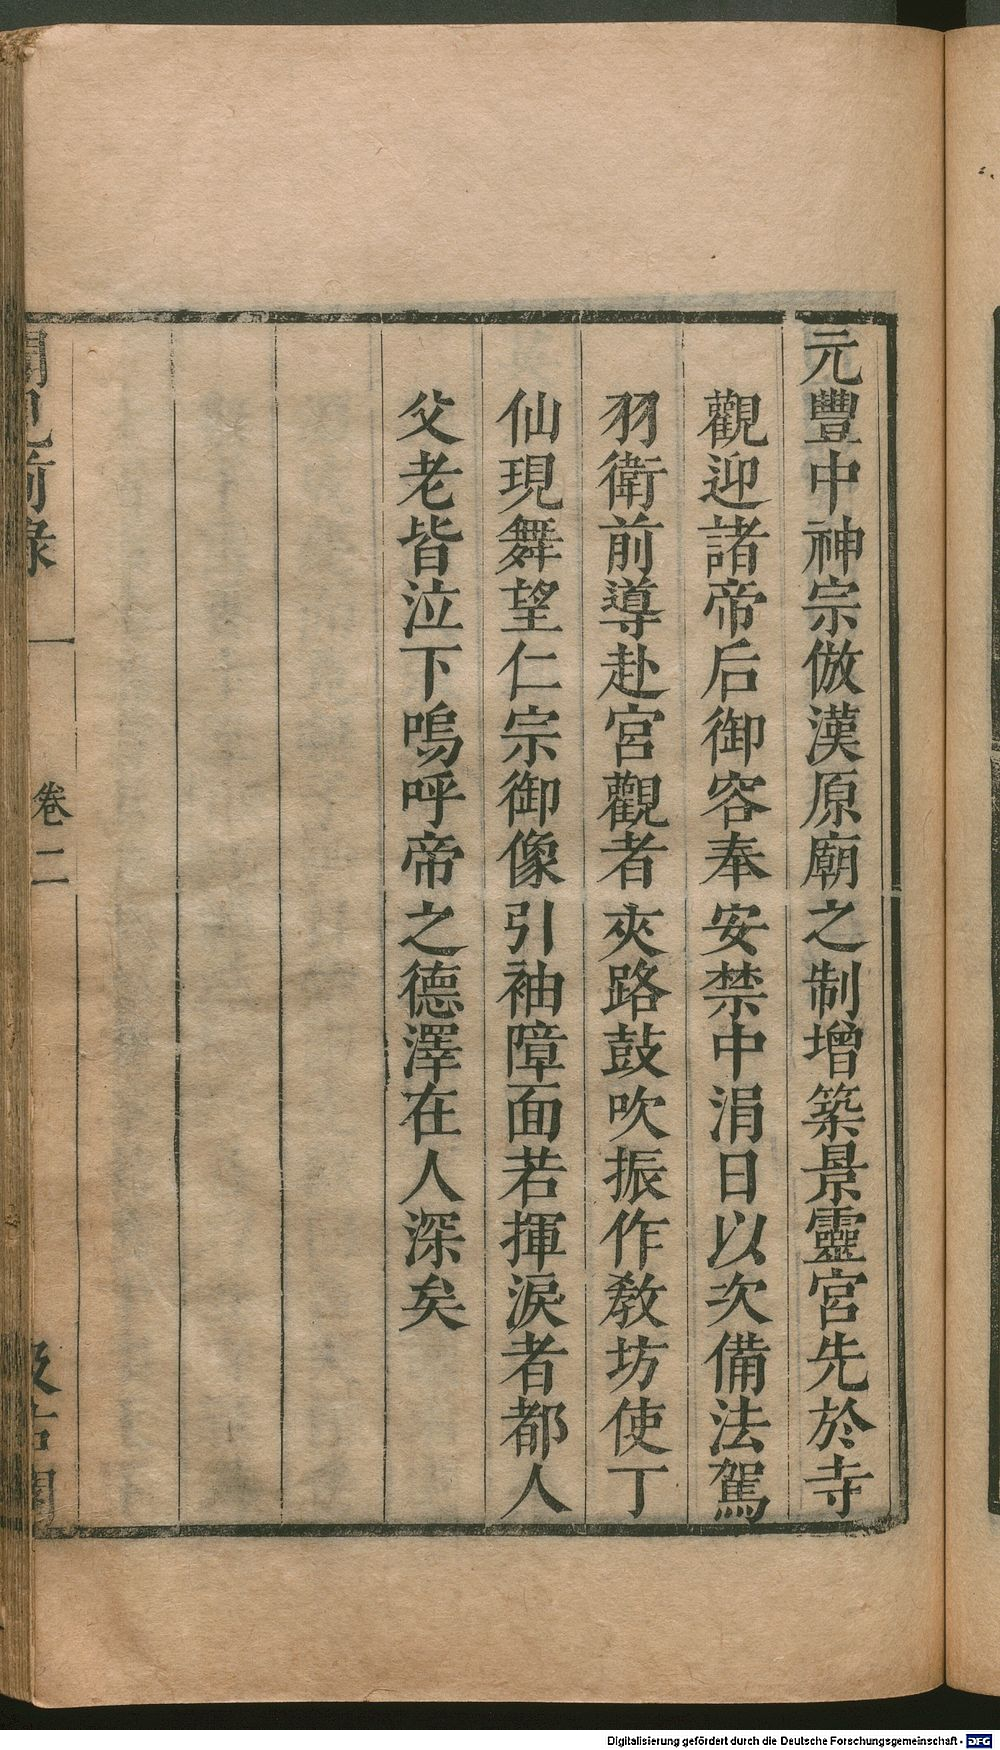 元豐中神宗倣漢原廟之制增築景靈宮先於寺
觀迎諸帝后御容奉安禁中涓日以次備法駕
羽衛前導赴宮觀者夾路鼓吹振作教坊使丁
仙現舞望仁宗御像引袖障面若揮淚者都人
父老皆泣下嗚呼帝之德澤在人深矣
聞見前錄 卷二 汲古閣
Digitalisierung gefördert durch die Deutsche Forschungsgemeinschaft - DFG